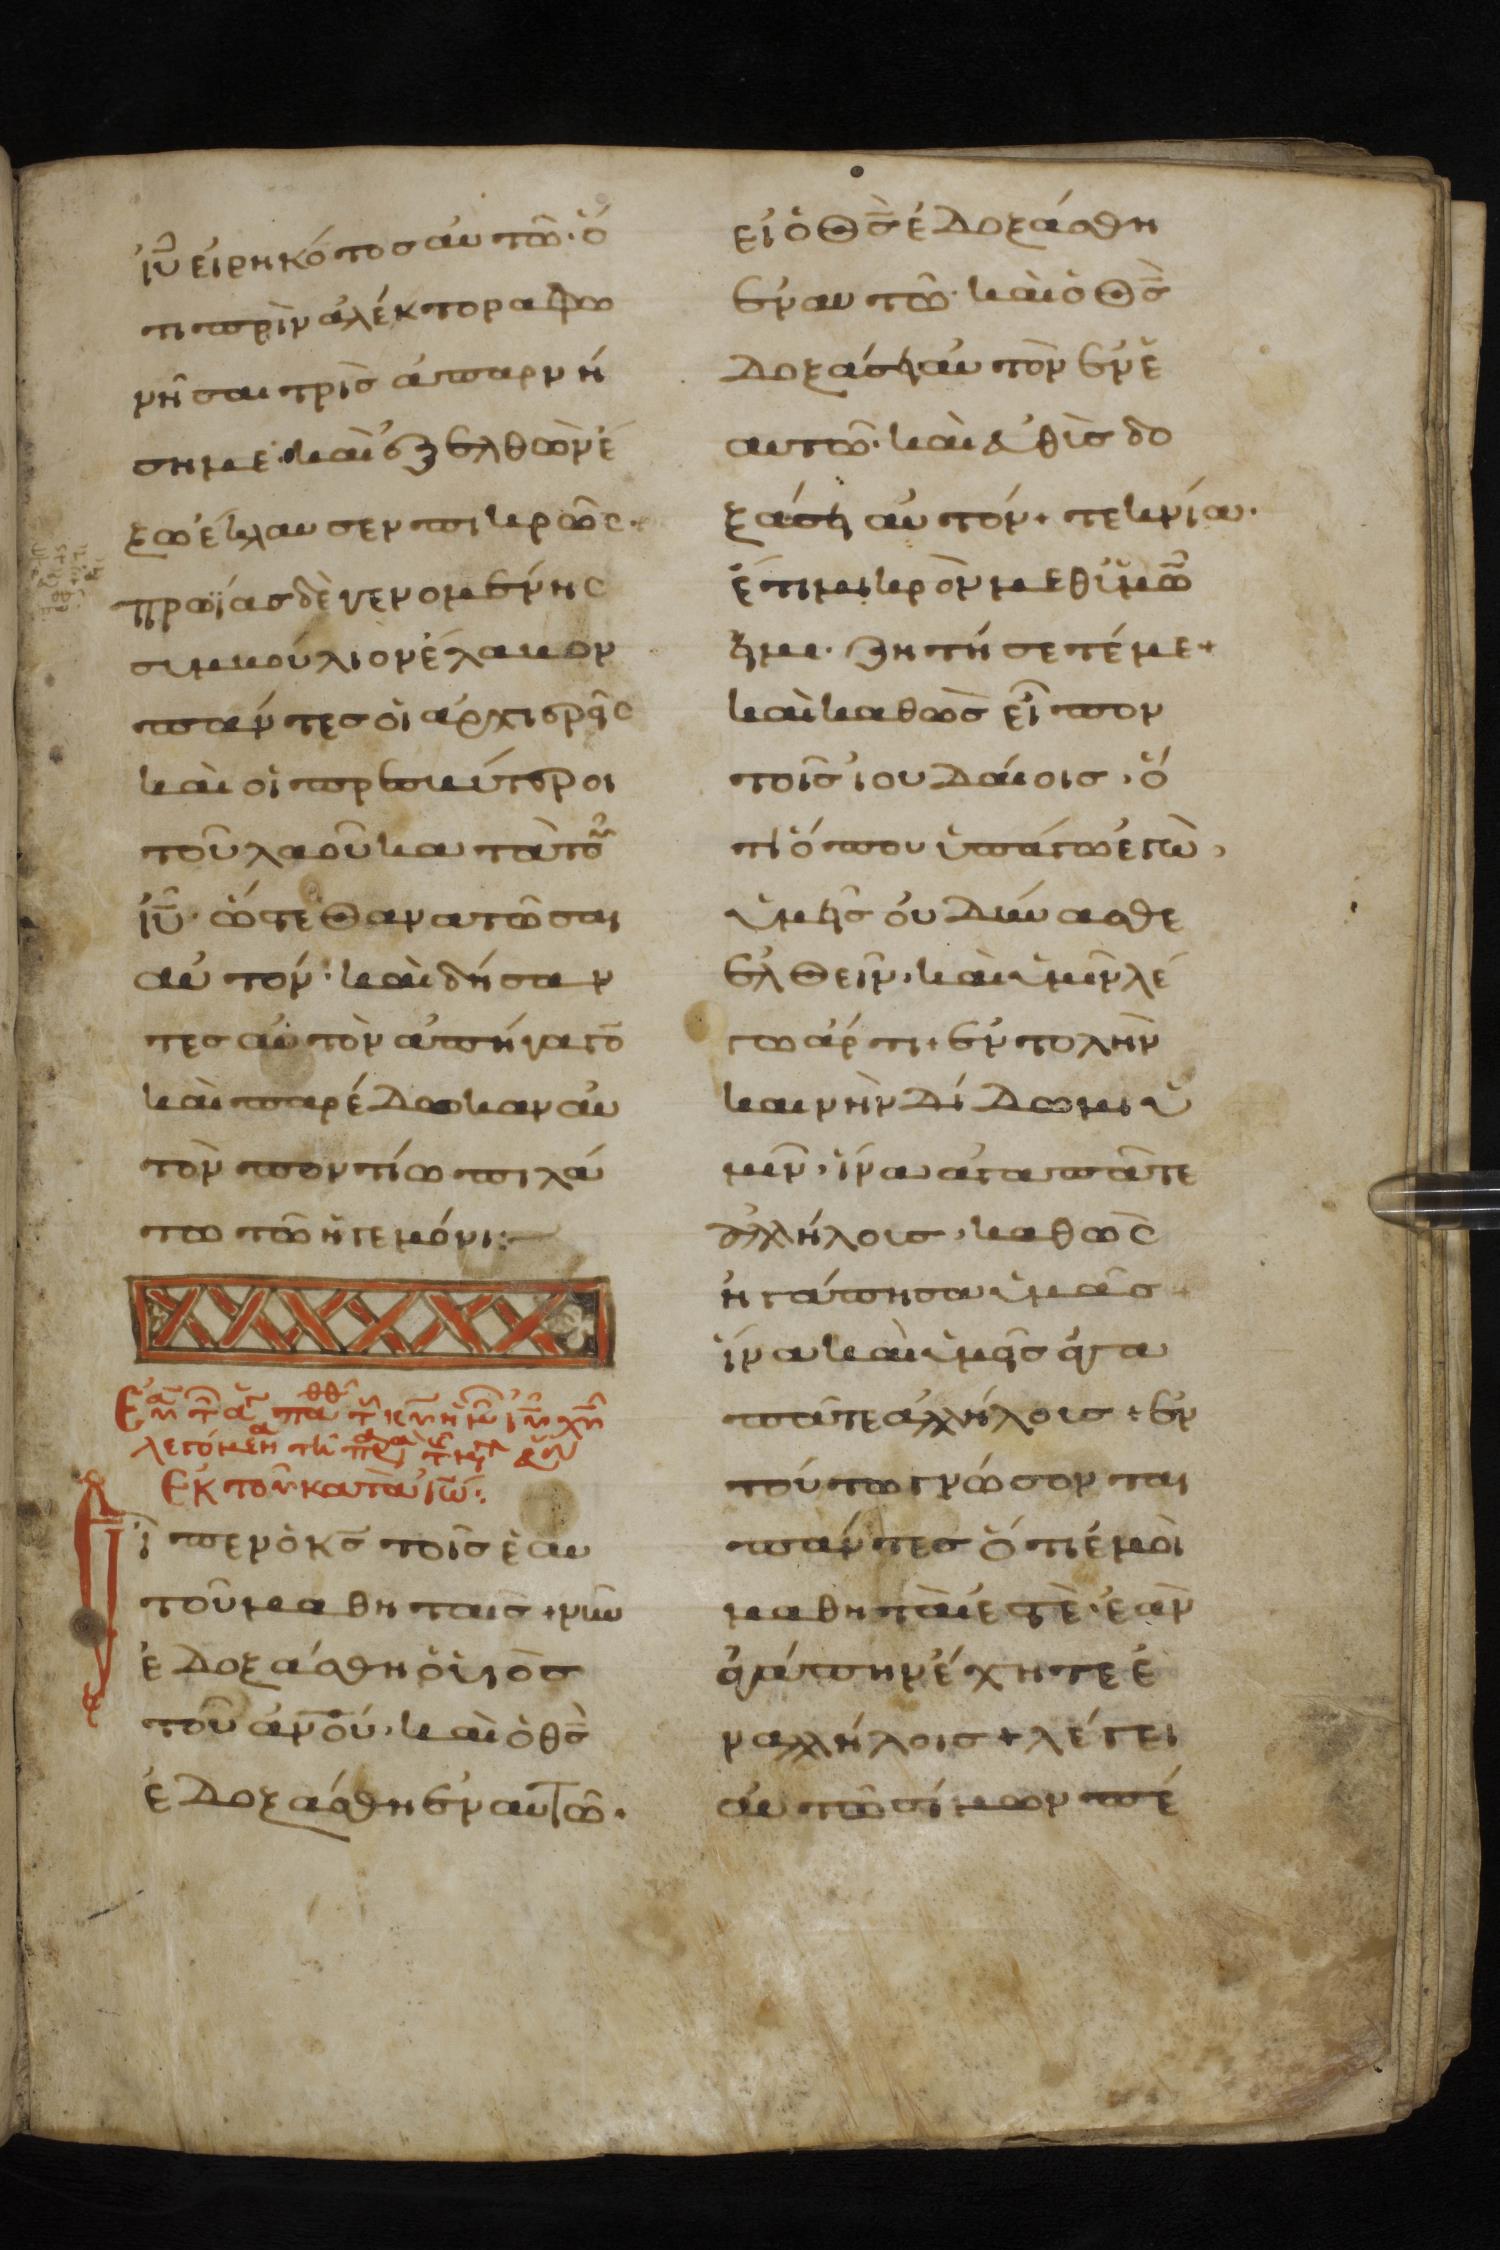 ἰῦ εἰρηκότοσ αὐτῶ· ὅ
τι πρὶν ἀλέκτορα φω
νῆσαι τρὶσ ἀπαρνή
ση με· καὶ ἐξελθὼν ἔ
ξω ἔκλαυσεν πικρῶς+
πρωΐασ δὲ γενομένης
συμβούλιον ἔλαβον
πάντεσ οἱ ἀρχιερεῖς
καὶ οἱ πρεσβύτεροι
τοῦ λαοῦ κατὰ τοῦ
ἰῦ· ὥστε θανατῶσαι
αὐτόν· καὶ δήσαν
τεσ αὐτὸν ἀπήγαγο̄
καὶ παρέδωκαν αὐ
τὸν ποντίω πιλά
τω τῶ ἡγεμόνι:
λεγόμενα
Ἐκ τοῦ κατὰ ἰω:
Εἶπεν ὁ κσ τοῖσ ἑαυ
τοῦ μαθηταῖσ+ νῦν
ἐδοξάσθη ὁ ὑιὸσ
τοῦ ἀνου· καὶ ὁ θσ
ἐδοξάσθη ἐν αὐτῶ·
εἰ ὁ θσ ἐδοξάσθη
ἐν αυτῶ· καὶ ὁ θσ
δοξάσει αὐτὸν ἐν ἑ
αυτῶ· καὶ εὐθὺσ δο
ξάσει αὐτόν+ τεκνία·
ἔτι μικρὸν μεθ ὑμῶν
εἰμι· ζητήσετέ με+
καὶ καθὼσ εἶπον
τοῖσ ἰουδαίοισ, ὅ
τι ὅπου ὑπάγω ἐγὼ,
ὑμεῖσ οὐ δύνασθε
ἐλθεῖν, καὶ ὑμῖν λέ
γω ἄρτι+ ἐντολὴν
καινὴν δίδωμι ὑ
μῖν, ἵνα ἀγαπᾶτε
ἀλλήλοισ, καθὼς
ἠγάπησα ὑμᾶσ+
ἵνα καὶ ὑμεῖσ ἀγα
πᾶτε ἀλλήλοισ+ ἐν
τούτω γνώσονται
πάντεσ ὅτι ἐμοὶ
μαθηταὶ ἐστὲ· ἐὰν
ἀγάπην ἔχητε ἐ
ν ἀλλήλοισ+ λέγει
αὐτῶ σίμων πέ